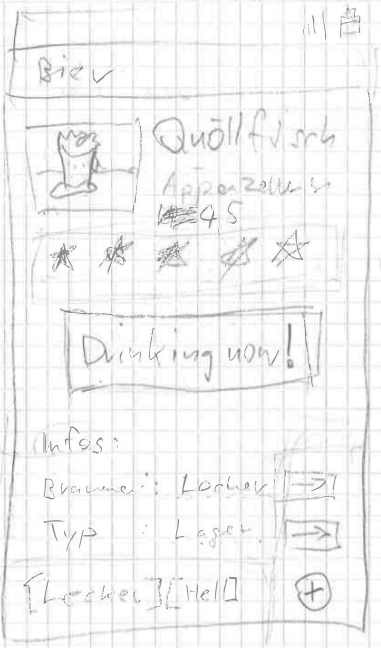 Bier
Quöllfrisch
Appenzeller
4,5
Drinking now!
Infos:
Brauerei: Locher →
Typ : Lager →
[Lecker][Hell] +